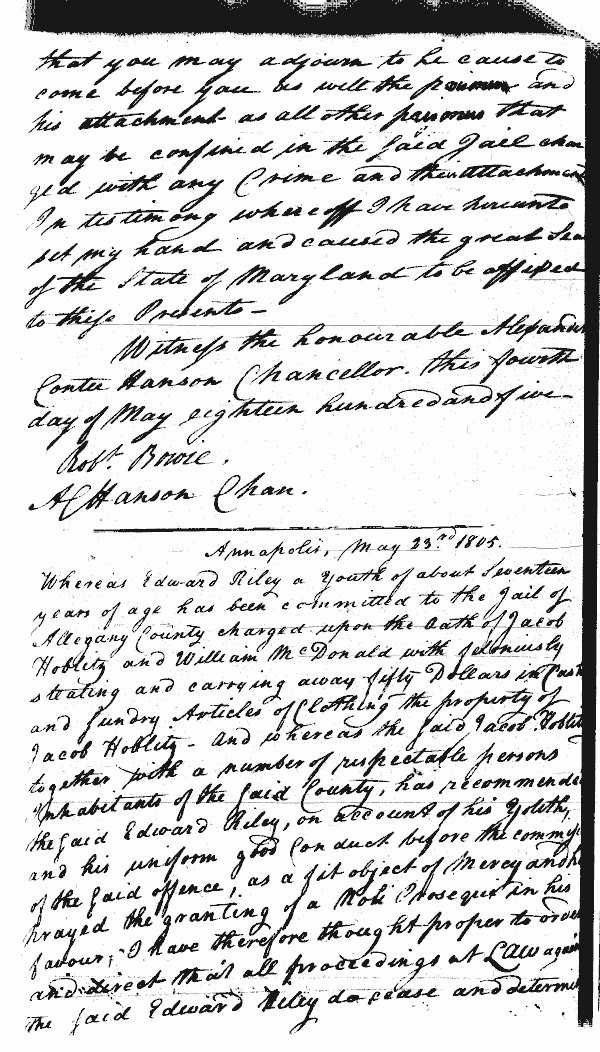 that you may adjourn to he cause to
come before you as well the prisoner and
his attachment as all other prisoners that
may be confined in the said Jail char
ged with any Crime and their attachment
In testimony whereoff I have hereunto
set my hand and caused the great Sea
of the State of Maryland to be affixed
to these Presents -
Witness the honourable Alexander
Contee Hanson Chancellor. this fourth
day of May eighteen hundred and five -
Robt. Bowie.
AC Hanson Chan.
Annapolis, May 23rd 1805.
Whereas Edward Riley a Youth of about Seventeen
years of age has been committed to the Jail of
Allegany County charged upon the Oath of Jacob
Hoblitz and William McDonald with feloniously
steating and carrying away fifty Dollars in Cash
and Sundry Articles of Clothing the property of
Jacob Hoblitz - And whereas the said Jacob Hoblitz
together with a number of respectable persons
Inhabitants of the said County, has recommende
the said Edward Riley, on account of his Youth,
and his uniform good Conduct before the commiss
of the said offence, as a fit object of Mercy and h
prayed the granting of a Noli Prosequi in his
favour; I have therefore thought proper to order
and direct that all proceedings at LAW again
the said Edward Riley do cease and determin